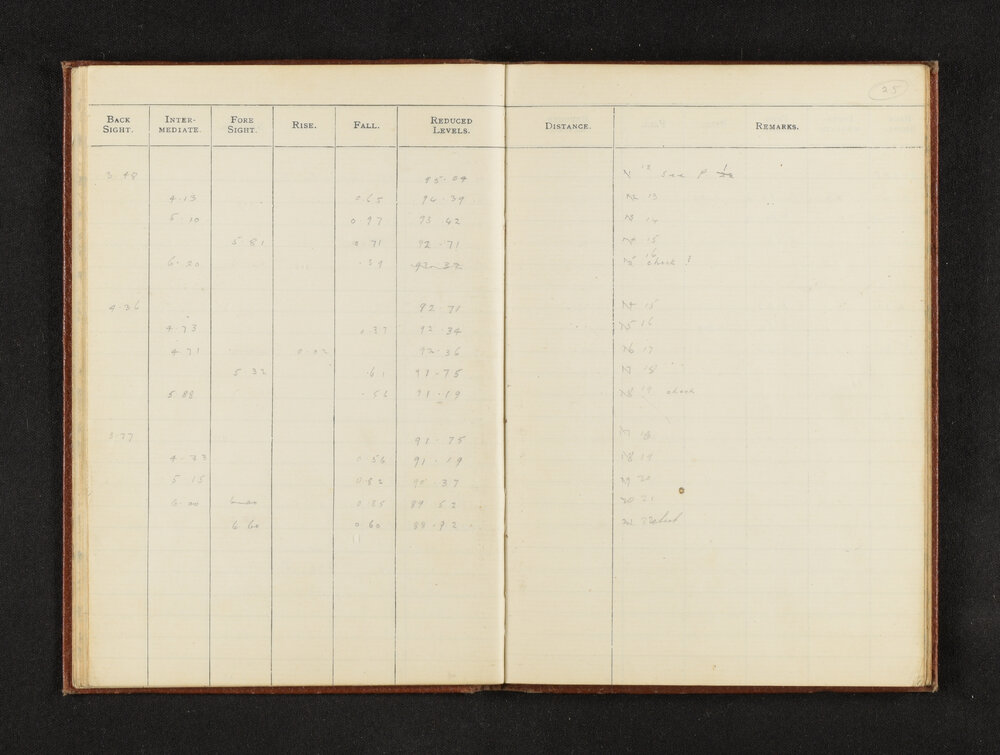 25
BACK SIGHT. INTER-MEDIATE. FORE SIGHT. RISE. FALL. REDUCED LEVELS. DISTANCE. REMARKS.
3.48 95.04 12 see P
4.13 0.65 94.39 13
5.10 0.97 93.42 14
5.81 0.71 92.71 15
6.20 .39 92.32 16 check ?
4.36 92.71 15
4.73 0.37 92.34 N5 16
4.71 0.02 92.36 N6 17
5.32 .61 91.75 18
5.88 .56 91.19 N8 19 check
3.77 91.75 18
4.33 0.56 91.19 N8 19
5.15 0.82 90.37 20
6.00 6.00 0.85 89.52 20 21
6.60 0.60 88.92 22 check